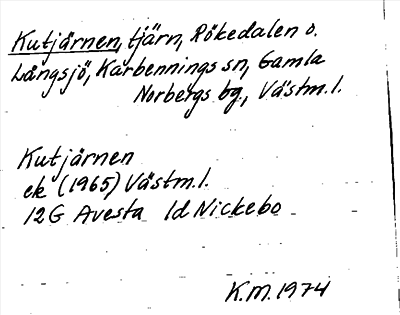 Kutjärnen, tjärn, Rökedalen o.
Långsjö, Karbennings sn, Gamla
Norbergs bg., Västm.l.
Kutjärnen
ek (1965) Västm.l.
12G Avesta 1d Nickebo
K.M. 1974